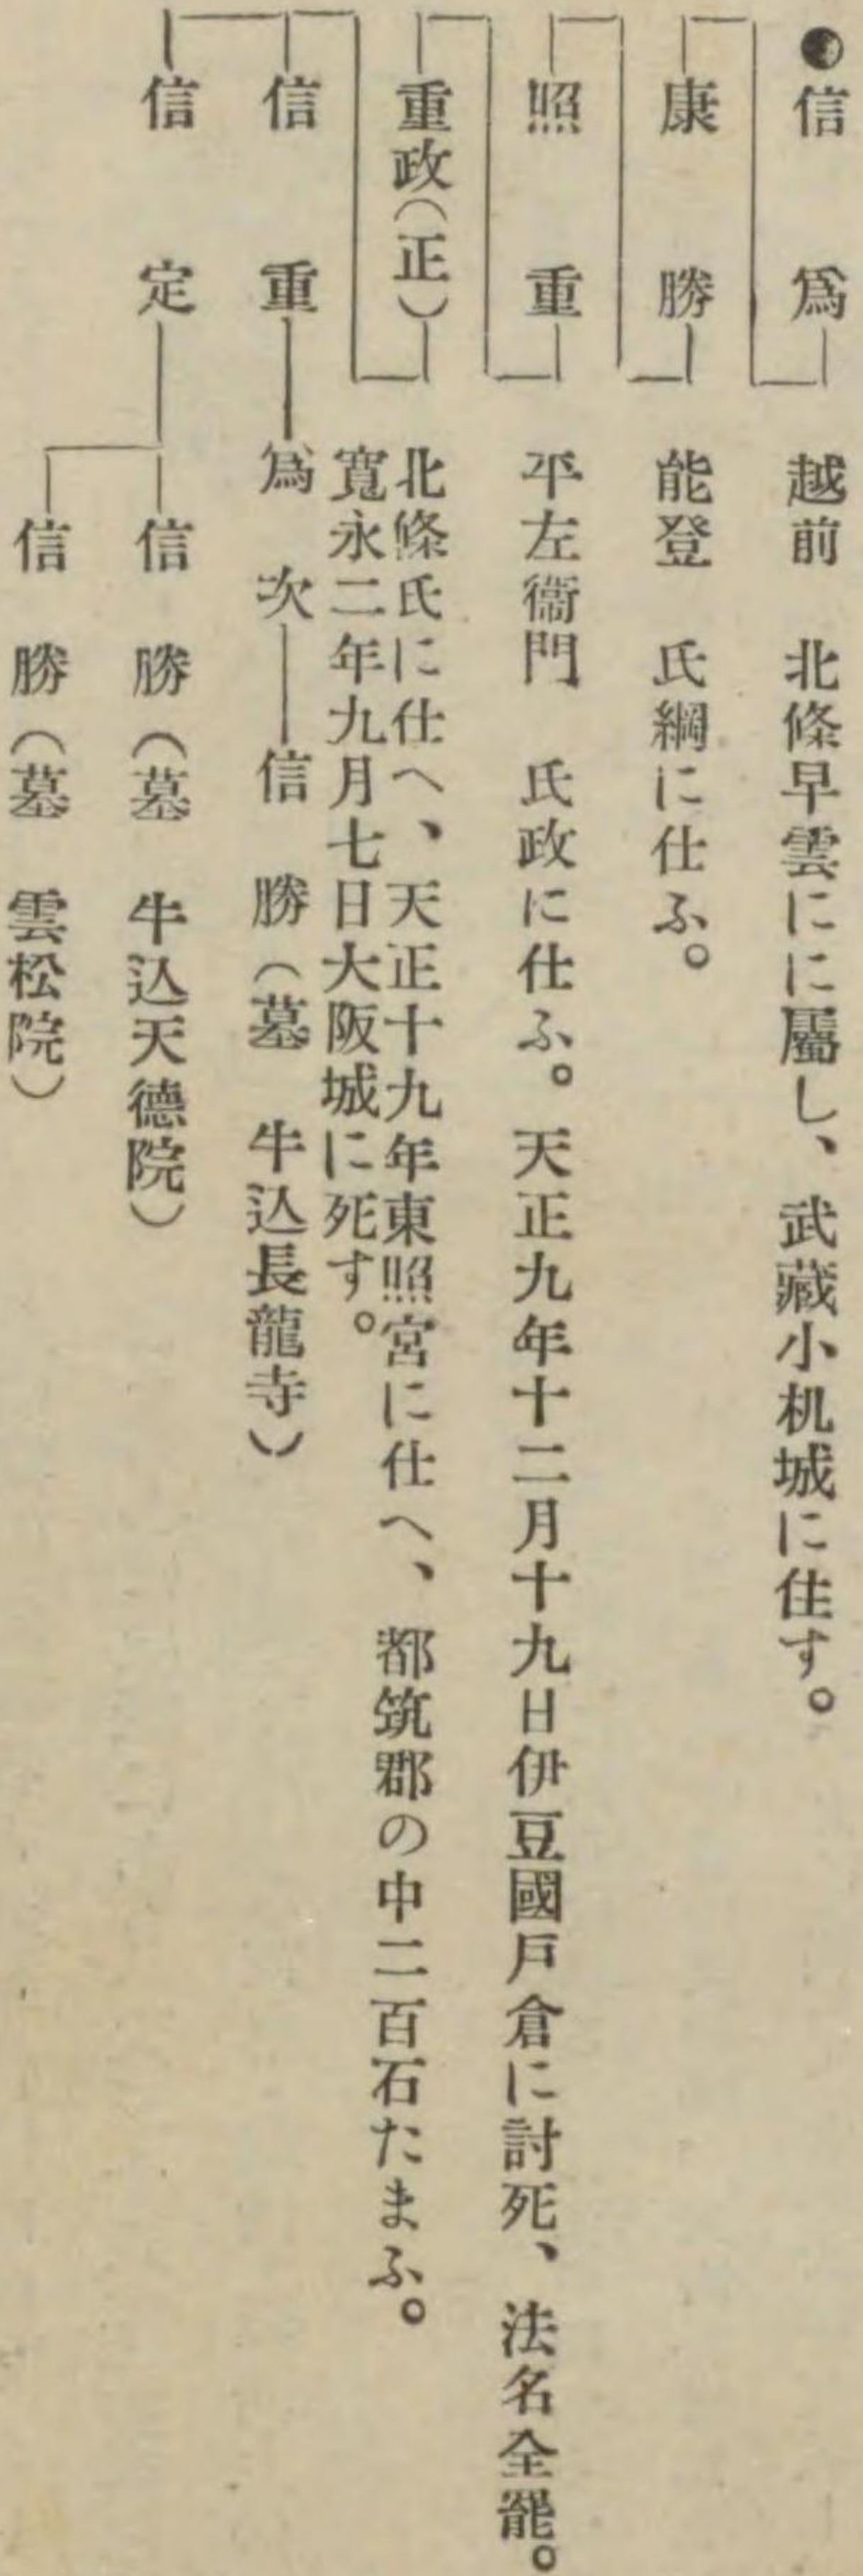 ●信爲 越前 北條早雲にに屬し、武藏小机城に住す。
康勝 能登 氏綱に仕ふ。
照重 平左衞門 氏政に仕ふ。天正九年十二月十九日伊豆國戸倉に討死、法名全罷。
重政(正) 北條氏に仕へ、天正十九年東照宮に仕へ、都筑郡の中二百石たまふ。
寬永二年九月七日大阪城に死す。
信重―爲次―信勝(墓 牛込長龍寺)
信定―信勝(墓 牛込天德院)
信勝(墓 雲松院)